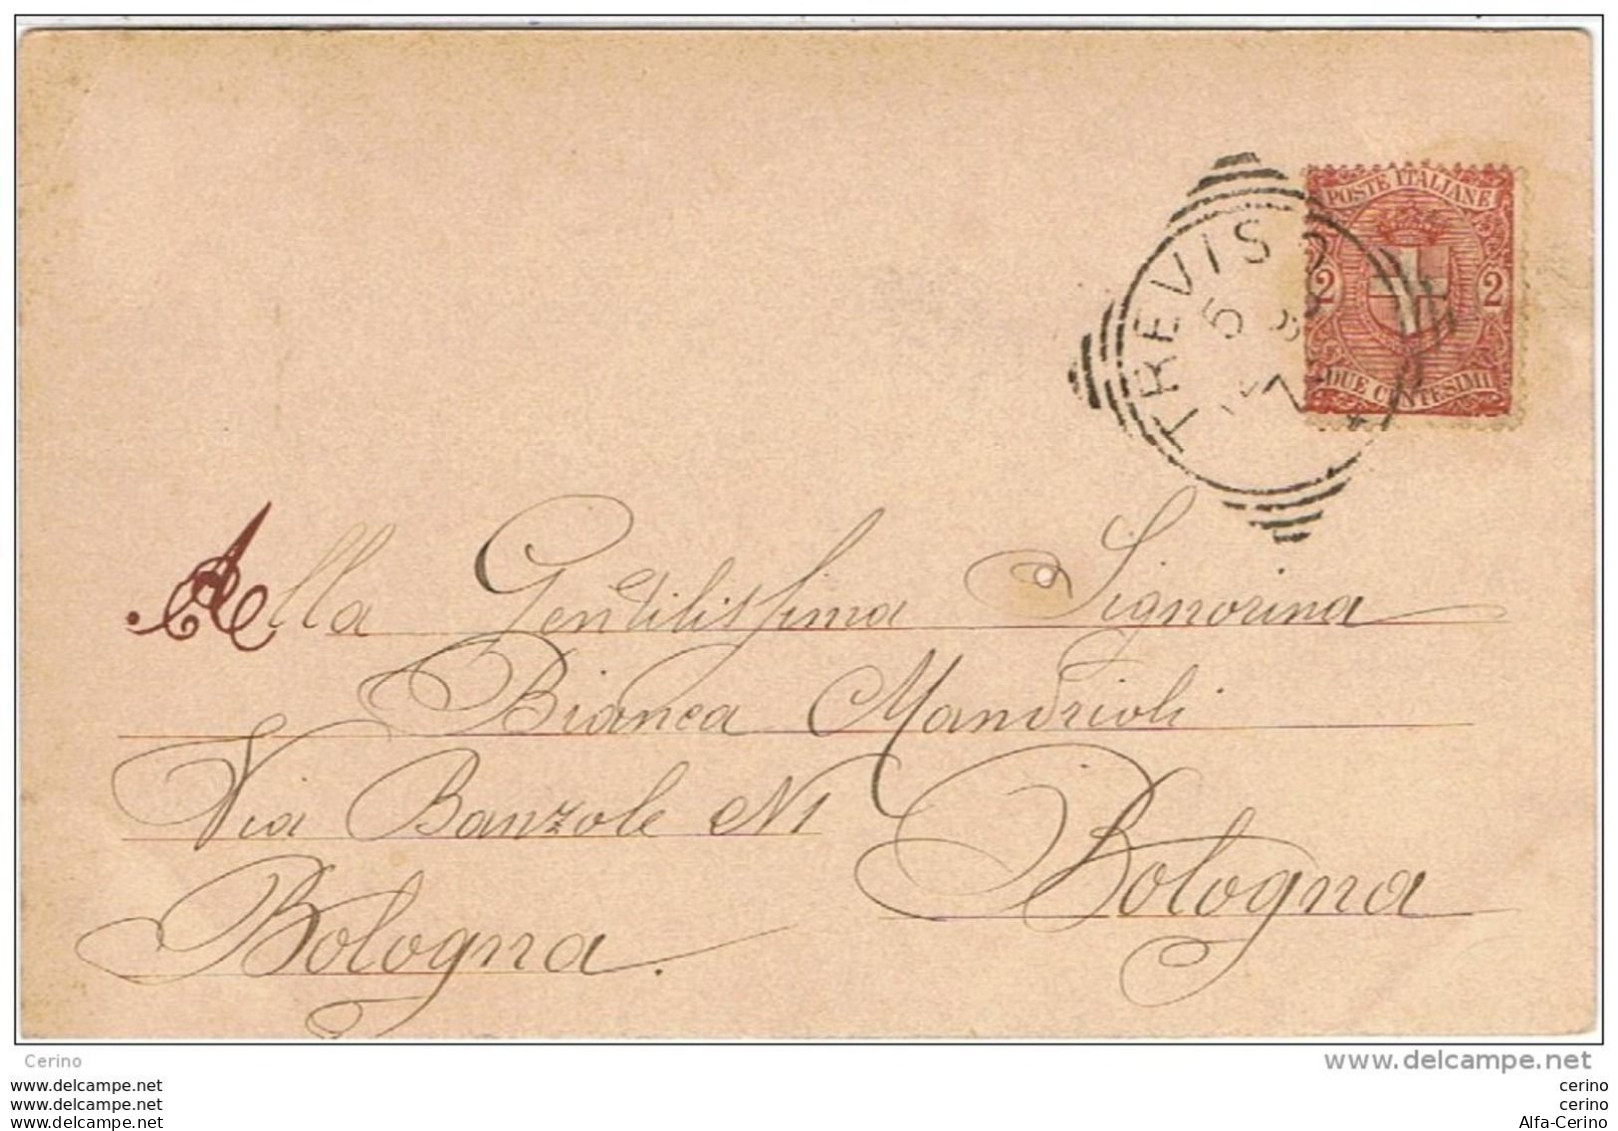 POSTE ITALIANE
2 2
DUE CENTESIMI
TREVISO
5
Alla Gentilissima Signorina
Bianca Mandrioli
Via Banzole N 1
Bologna
Bologna.
Cerino
www.delcampe.net
www.delcampe.net
www.delcampe.net
www.delcampe.net
cerino
cerino
Alfa-Cerino